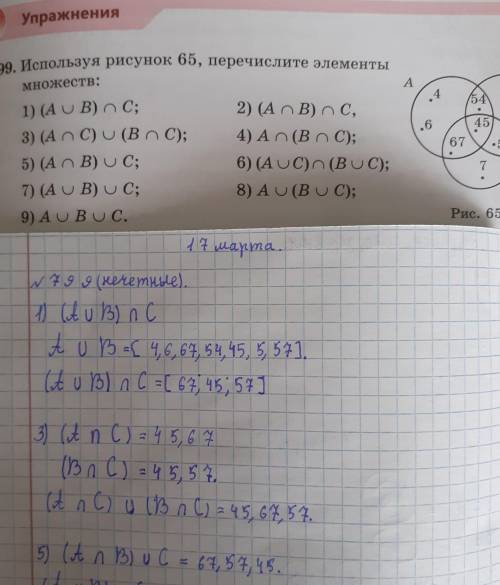 Упражнения
99. Используя рисунок 65, перечислите элементы
множеств:
1) (A ∪ B) ∩ C; 2) (A ∩ B) ∩ C,
3) (A ∩ C) ∪ (B ∩ C); 4) A ∩ (B ∩ C);
5) (A ∩ B) ∪ C; 6) (A∪C)∩(B∪C);
7) (A ∪ B) ∪ C; 8) A∪(B ∪ C);
9) A ∪ B ∪ C.
A
4
54
6
45
67
7
Рис. 65
17 марта.
№ 799 (нечетные).
1) (A ∪ B) ∩ C
A ∪ B = [4,6,67,54,45,5,57].
(A ∪ B) ∩ C = [67; 45; 57]
3) (A ∩ C) = 45,67
(B ∩ C) = 45,57.
(A ∩ C) ∪ (B ∩ C) = 45,67,57.
5) (A ∩ B) ∪ C = 67,57,45.